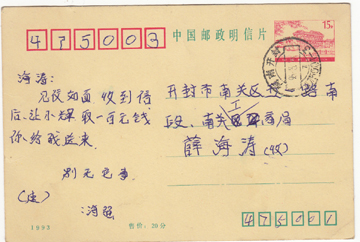 475003
中国邮政明信片
15分
海涛：
见信如面 收到信
后，让小 取一百元钱
你给我送来
别无它事
(庄)
海强
开封市南关区 路南
段、南关区工商局
薛海涛(收)
1993
售价：20分
475001